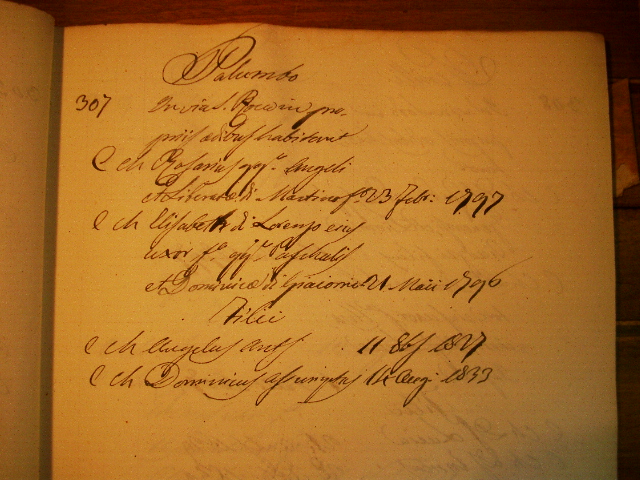 Palumbo
307 In via S. Rocci in pro-
priis aedibus habitant
C Ch Rosarius qm. Angeli
et Liberatae di Martino f.s 23 Febr: 1797
C Ch Elisabeth di Lorenzo eius
uxor f.a qm. Paschalis
et Dominicae di Giacomo 21 Maii 1796
Filii
C Ch Angelus Ant.s 11 8bris 1827
C Ch Dominicus Assumptus 14 Aug: 1833